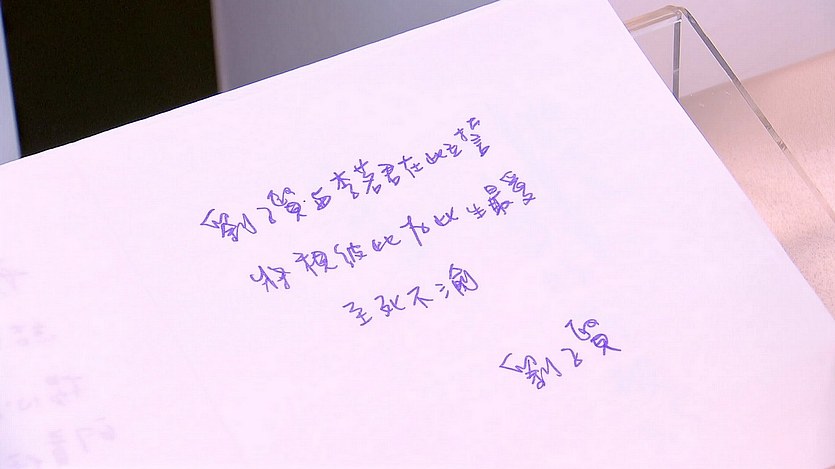 劉子賢與李若君在此立誓
將視彼此為此生最愛
至死不渝
劉子賢